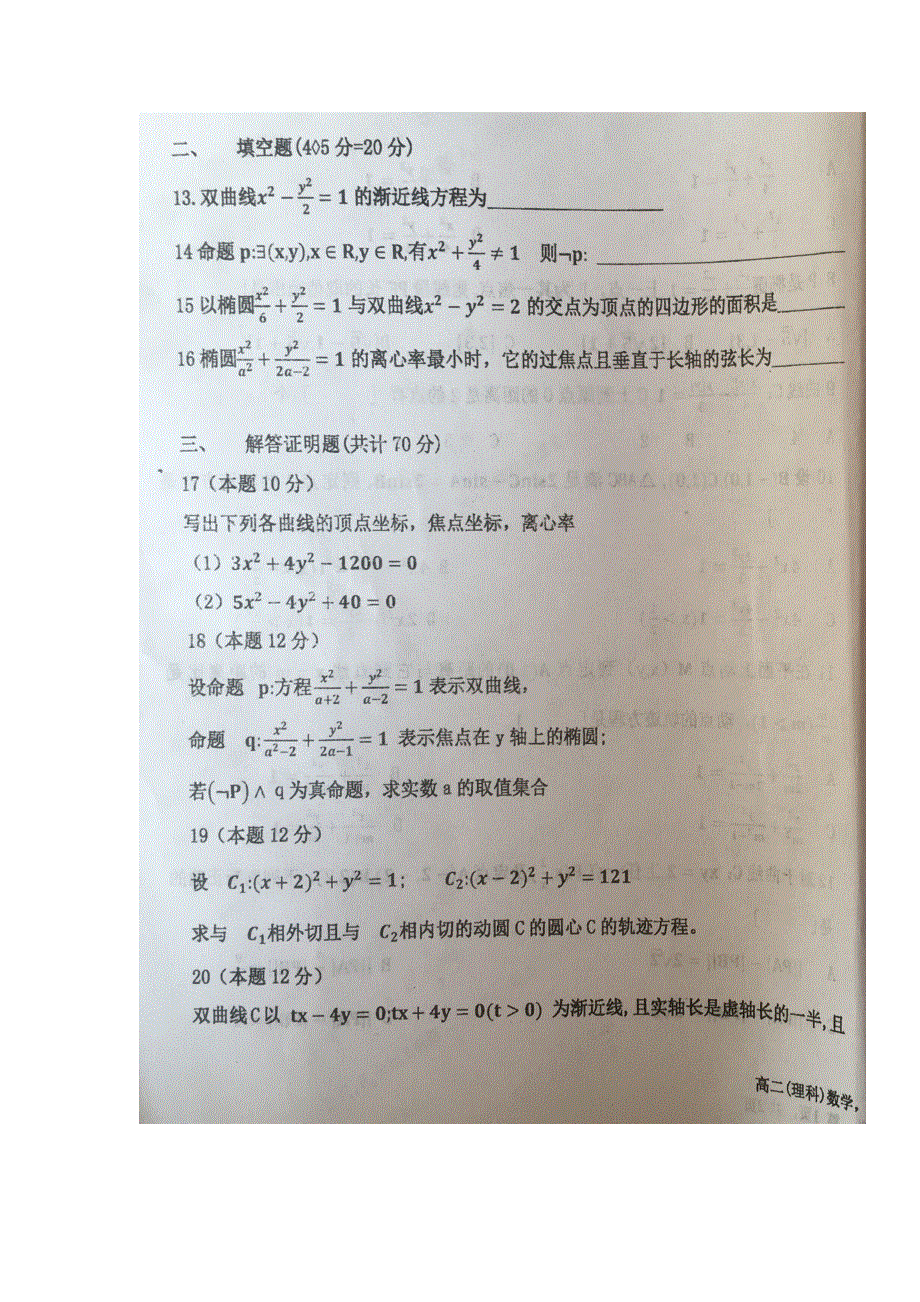 二、 填空题(4◊5分=20分)
13.双曲线x² − y²/2 = 1 的渐近线方程为__________
14命题 p:∃(x,y),x∈R,y∈R,有x² + y²/4 ≠ 1 则¬p: __________
15以椭圆x²/6 + y²/2 = 1 与双曲线x² − y² = 2 的交点为顶点的四边形的面积是______
16椭圆x²/a² + y²/(2a−2) = 1 的离心率最小时，它的过焦点且垂直于长轴的弦长为______
三、 解答证明题(共计70分)
17（本题10分）
写出下列各曲线的顶点坐标，焦点坐标，离心率
（1）3x² + 4y² − 1200 = 0
（2）5x² − 4y² + 40 = 0
18（本题12分）
设命题 p:方程 x²/(a+2) + y²/(a−2) = 1 表示双曲线，
命题 q: x²/(a²−2) + y²/(2a−1) = 1 表示焦点在y轴上的椭圆;
若(¬P)∧ q为真命题，求实数a的取值集合
19（本题12分）
设 C₁:(x + 2)² + y² = 1; C₂:(x − 2)² + y² = 121
求与 C₁相外切且与 C₂相内切的动圆C的圆心C的轨迹方程。
20（本题12分）
双曲线C以 tx − 4y = 0;tx + 4y = 0(t > 0) 为渐近线,且实轴长是虚轴长的一半,且
高二(理科)数学,